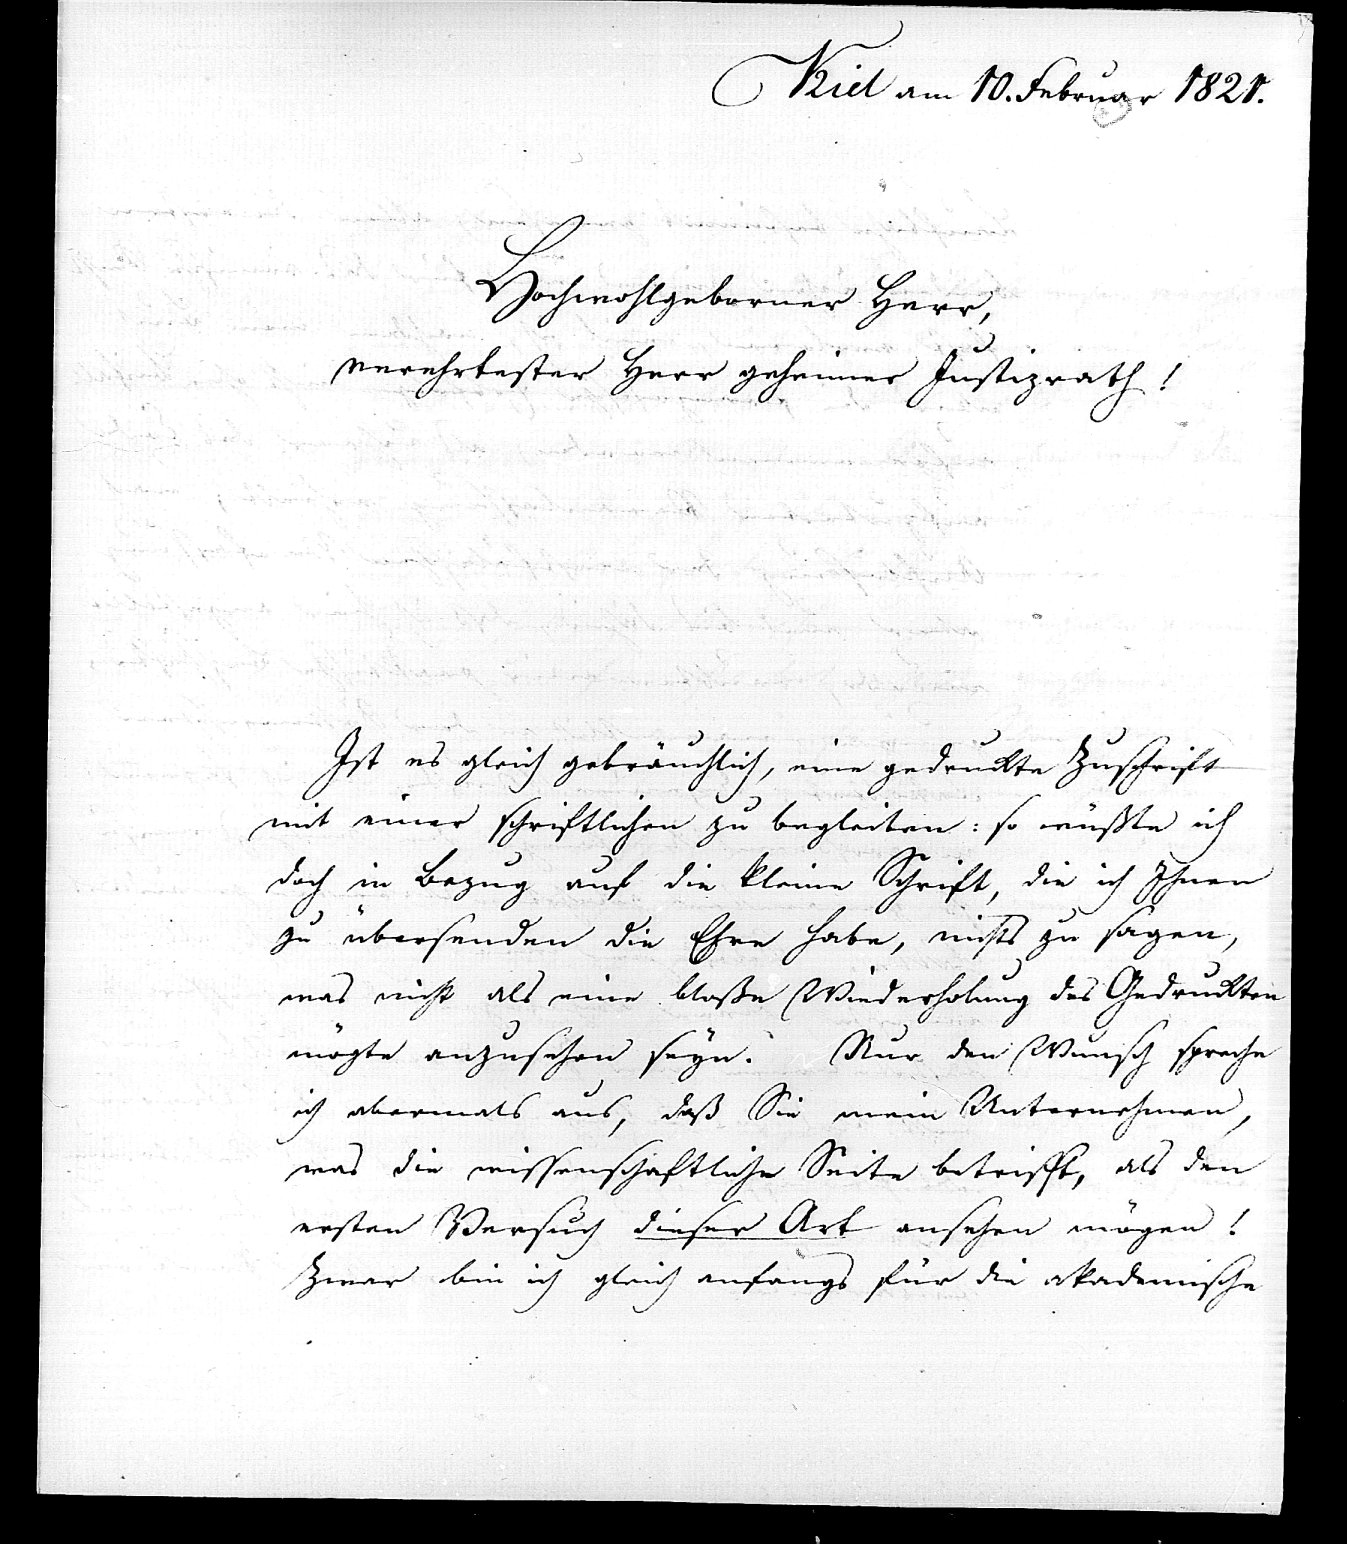 Kiel am 10. Februar 1821.
Hochwohlgeborner Herr,
verehrtester Herr geheimer Justizrath!
Ist es gleich gebräuchlich, eine gedruckte Zuschrift
mit einer schriftlichen zu begleiten: so wüßte ich
doch in Bezug auf die kleine Schrift, die ich Ihnen
zu übersenden die Ehre habe, nichts zu sagen,
was nicht als eine bloße Wiederholung des Gedruckten
mögte anzusehen seyn. Nur den Wunsch spreche
ich abermals aus, daß Sie mein Unternehmen,
was die wissenschaftliche Seite betrifft, als den
ersten Versuch dieser Art ansehen mögen!
Zwar bin ich gleich anfangs für die akademische